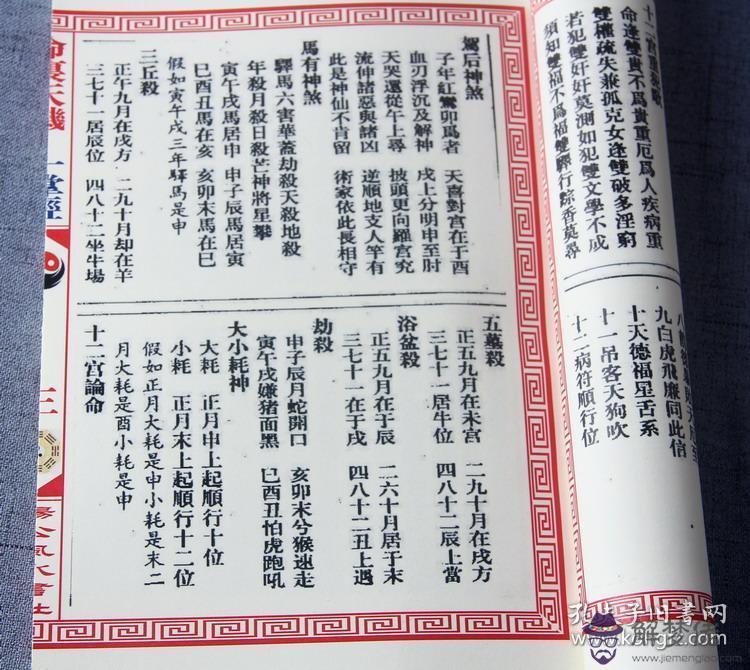 十二宮重犯歌
命逢雙貴不爲貴重厄爲人疾病重
雙權疏失兼孤克女逢雙破多淫窮
若犯雙奸奸莫測如犯雙文學不成
須知雙福不爲福雙驛行踪杳莫尋
九白虎飛廉同此信
十天德福星舌系
十一吊客天狗吹
十二病符順行位
駕后神煞
子年紅鸞卯爲者 天喜對宫在于酉
血刃浮沉及解神 戌上分明申至肘
天哭還從午上尋 披頭更向羅宫究
流伸諸惡與諸凶 逆順地支人竿有
此是神仙不肯留 術家依此長相守
馬有神煞
驛馬六害華蓋劫殺天殺地殺
年殺月殺日殺芒神將星攀
寅午戌馬居申 申子辰馬居寅
巳酉丑馬在亥 亥卯未馬在巳
假如寅午戌三年驛馬是申
三丘殺
正午九月在戌方 二九十月却在羊
三七十一居辰位 四八十二坐牛場
五墓殺
正五九月在未宫 二九十月在戌方
三七十一居牛位 四八十二辰上當
浴盆殺
正五九月在于辰 二六十月居于末
三七十一在于戌 四八十二丑上遇
劫殺
申子辰月蛇開口 亥卯末兮猴速走
寅午戌嫌猪面黑 巳酉丑怕虎跑吼
大小耗神
大耗 正月申上起順行十位
小耗 正月末上起順行十二位
假如正月大耗是申小耗是末二
月大耗是酉小耗是申
十二宫論命
命裏天機 一掌經
三
楊公風水書社
孔夫子旧書网
解梦佬
www.jiemenglao.com